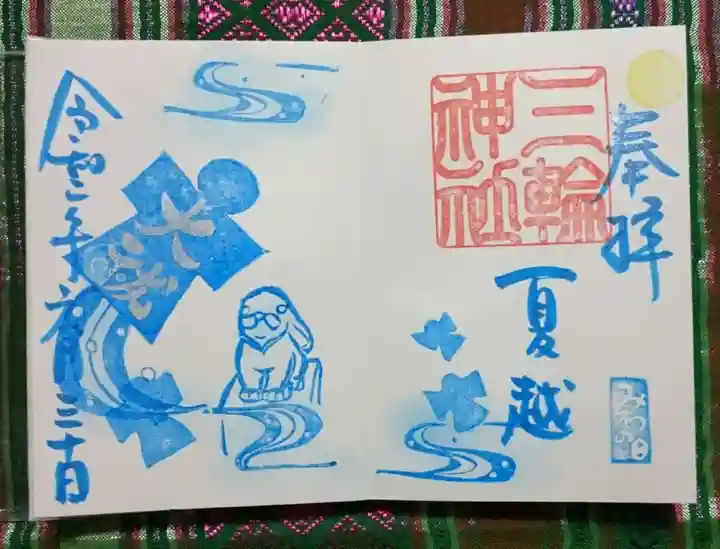 奉拝
みわの日
三輪
神社
夏越
大祓
令和二年六月三十日